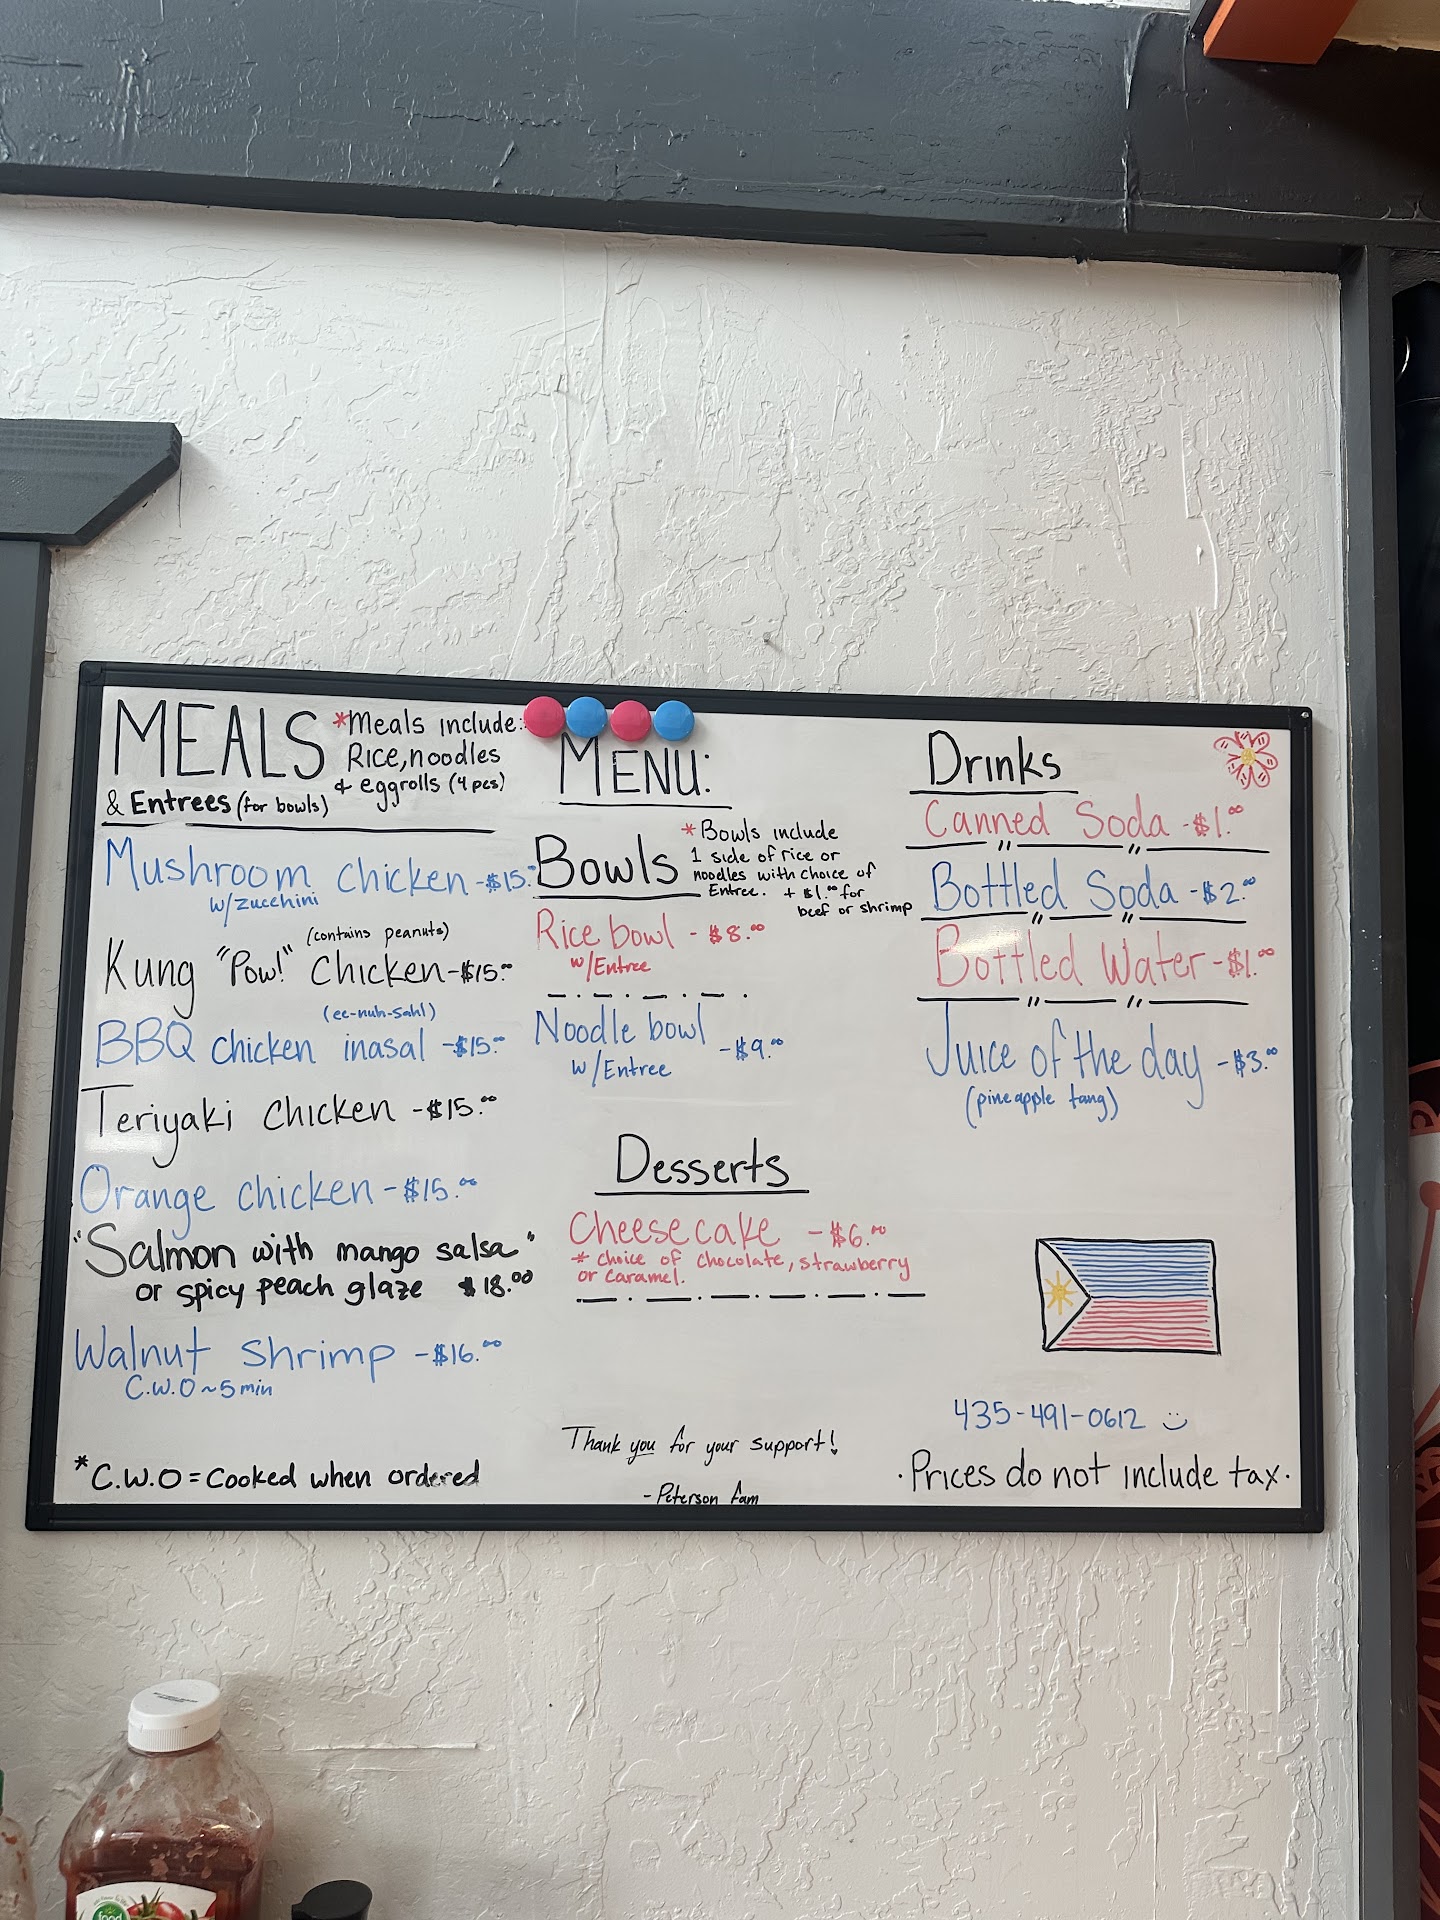 MEALS
*Meals include:
Rice, noodles
& eggrolls (4 pcs)
& Entrees (for bowls)
Mushroom chicken - $15.00
w/zucchini
(contains peanuts)
Kung "Pow!" Chicken - $15.00
(ee-nuh-sahl)
BBQ chicken inasal - $15.00
Teriyaki chicken - $15.00
Orange chicken - $15.00
"Salmon with mango salsa"
or spicy peach glaze $18.00
Walnut shrimp - $16.00
C.W.O ~ 5 min
*C.W.O = Cooked when ordered
MENU:
Bowls
*Bowls include
1 side of rice or
noodles with choice of
Entree. + $1.00 for
beef or shrimp
Rice bowl - $8.00
w/Entree
Noodle bowl - $9.00
w/Entree
Desserts
Cheesecake - $6.00
* choice of chocolate, strawberry
or caramel.
Thank you for your support!
- Peterson fam
Drinks
Canned Soda - $1.00
Bottled Soda - $2.00
Bottled Water - $1.00
Juice of the day - $3.00
(pineapple tang)
435-491-0612
· Prices do not include tax ·
food